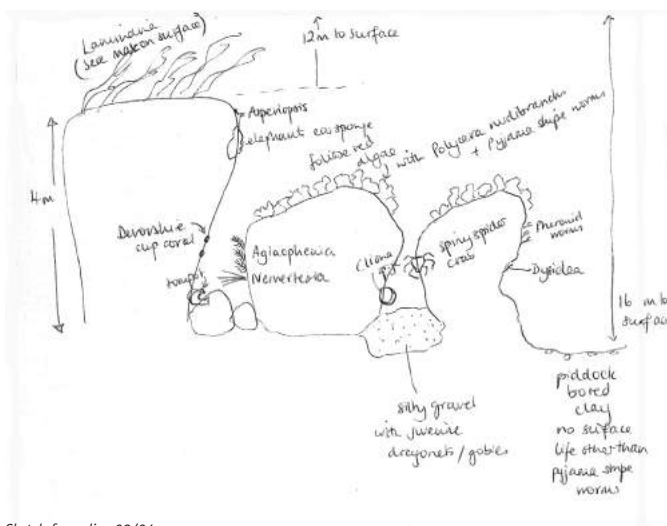 Laminaria
(sea mat on surface)
12m to surface
Asperiopsis
elephant ear sponge
foliose red
algae
with Polycera nudibranchs
+ Pyjama stripe worms
4m
Devonshire
cup coral
Aglaophenia
Nemertesia
Cliona
spiny spider
crab
Phoronid
worms
Dysidea
16 m to
surface
silty gravel
with juvenile
dragonets/gobies
piddock
bored
clay
no surface
life other than
pyjama stripe
worms